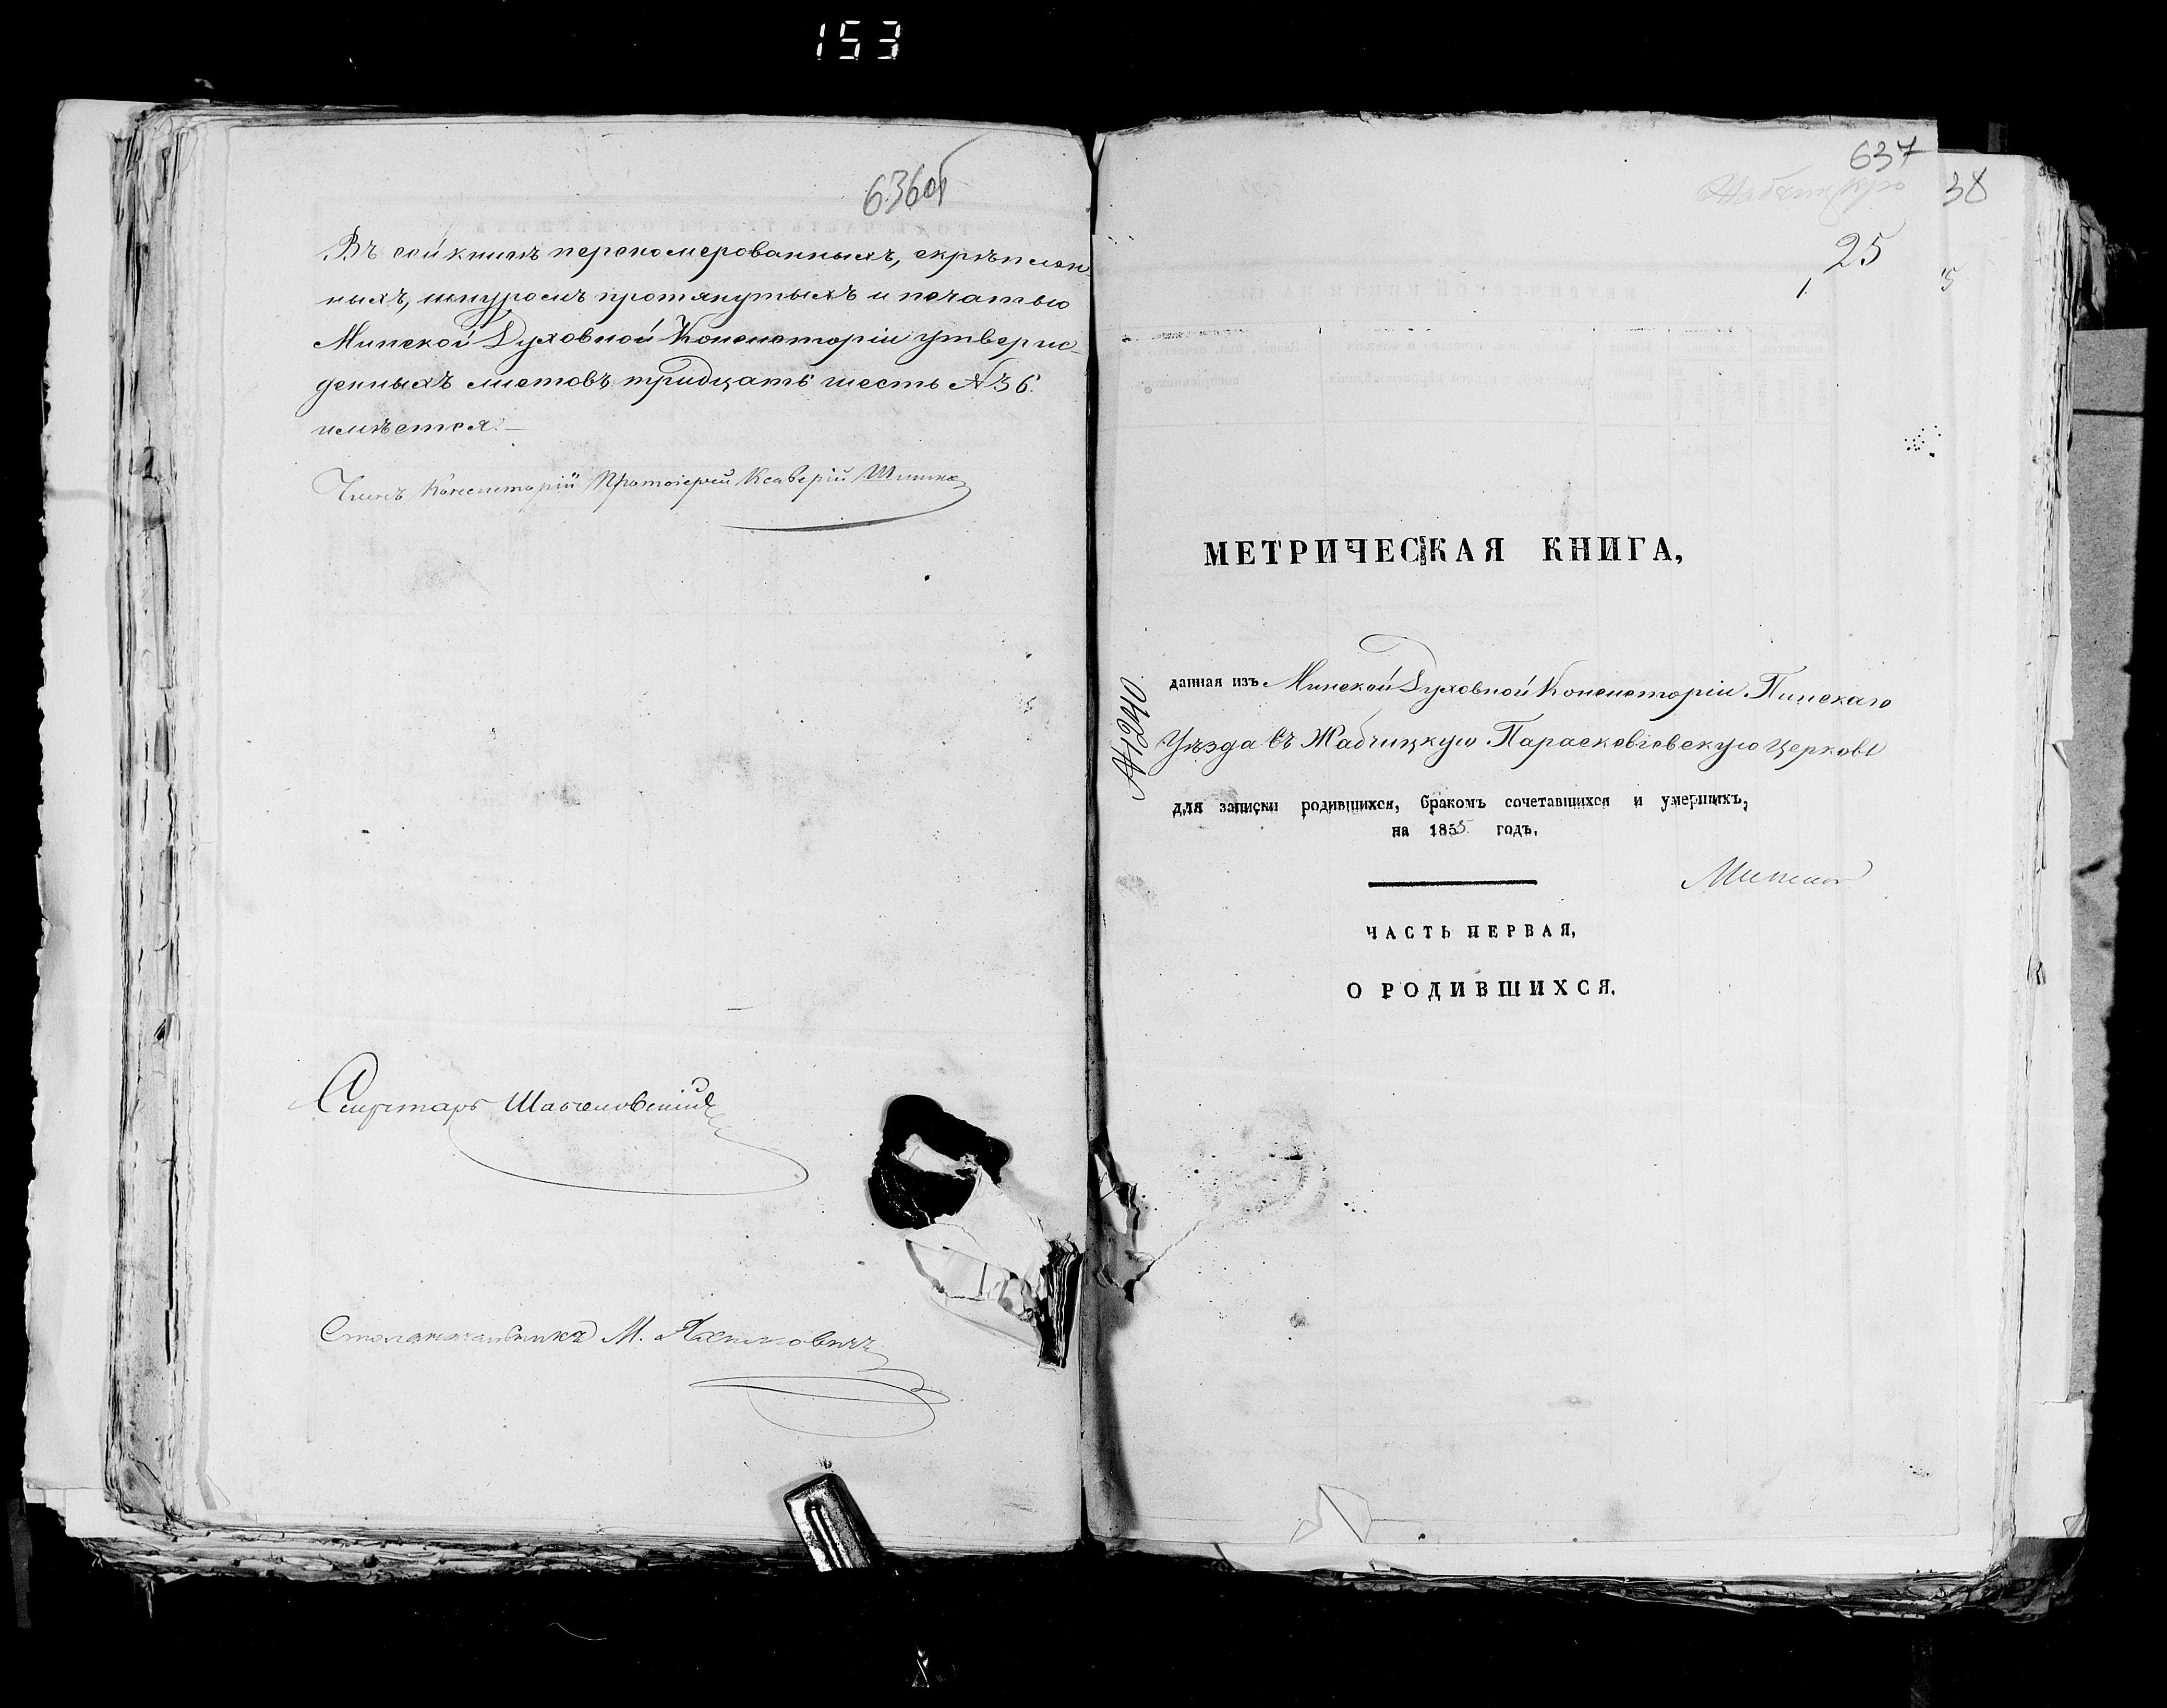 153
636об
Въ сей книгѣ перенумерованныхъ, скрѣплен-
ныхъ, шнуромъ протянутыхъ и печатью
Минской Духовной Консисторіи утверж-
денныхъ листовъ тридцать шесть №36.
имѣется.—
Членъ Консисторіи Протоіерей Ксаверій
Секретарь
Столоначальникъ М. Яхимовичъ
637
38
25
1
МЕТРИЧЕСКАЯ КНИГА,
№1240
данная изъ Минской Духовной Консисторіи Пинскаго
Уѣзда въ Жабчицкую Параскевіевскую церковь
для записки родившихся, бракомъ сочетавшихся и умершихъ,
на 1855 годъ.
ЧАСТЬ ПЕРВАЯ,
О РОДИВШИХСЯ.